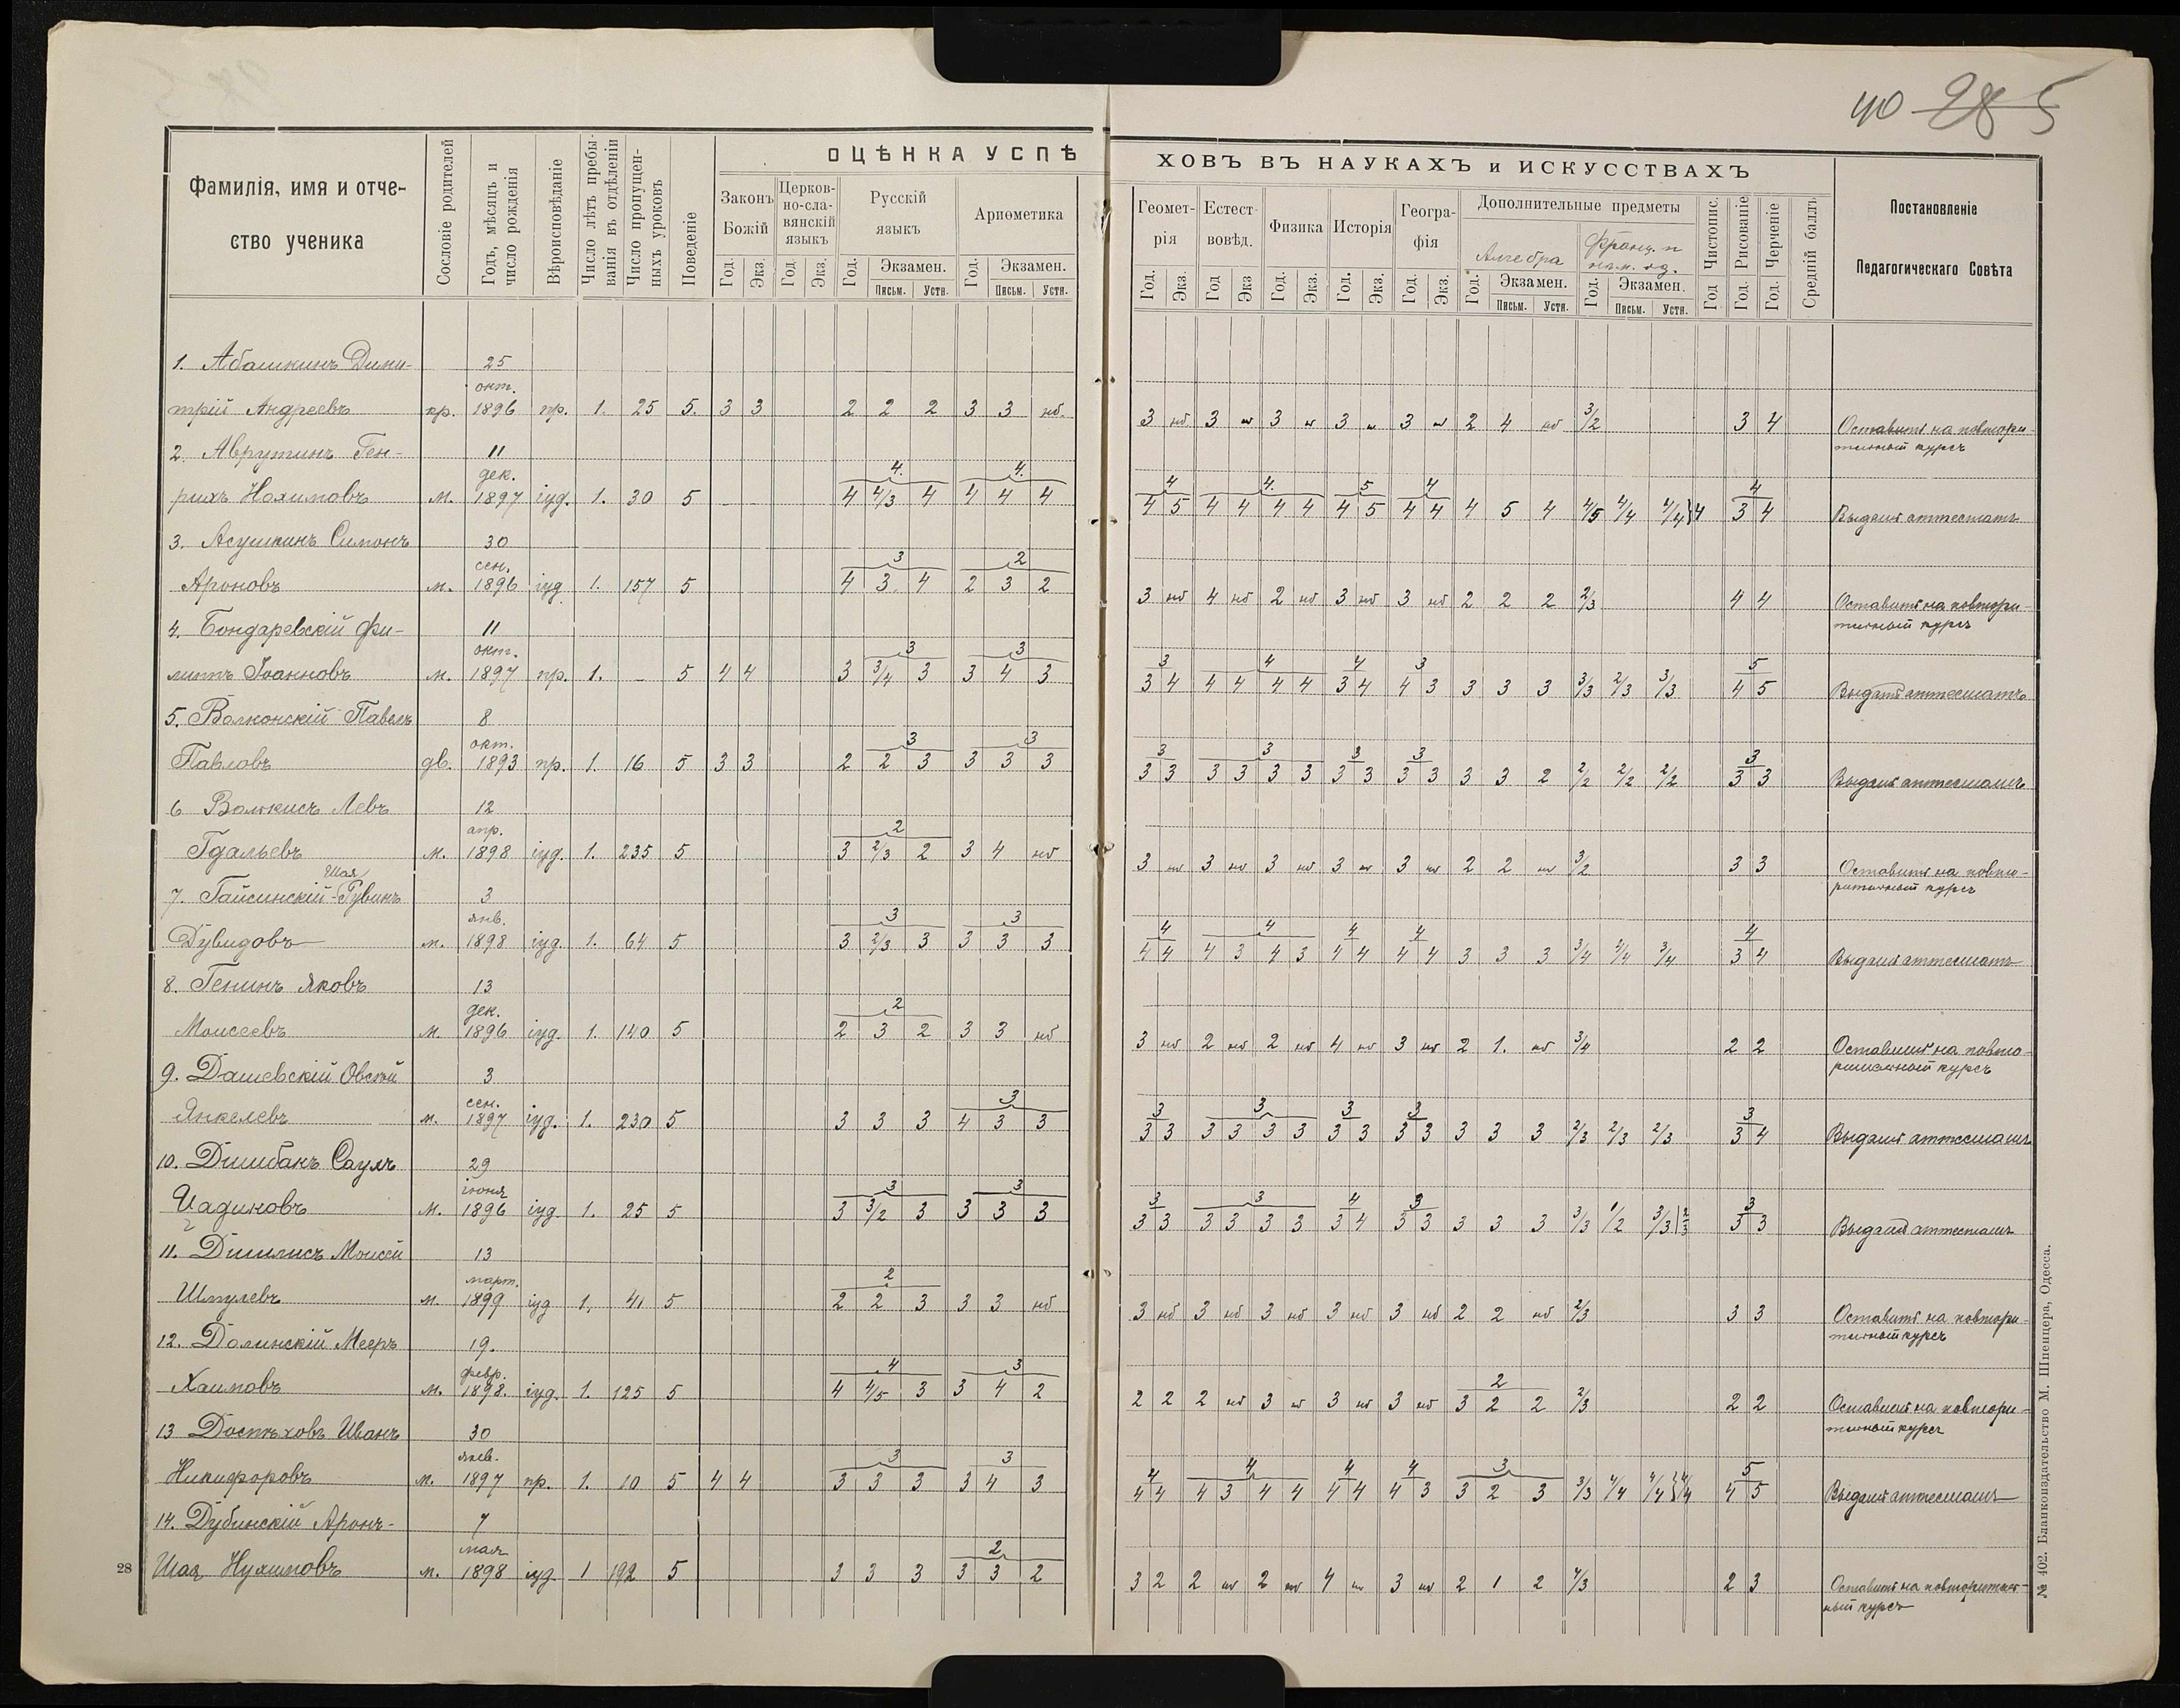 40 28 5
ОЦѢНКА УСПѢ
ХОВЪ ВЪ НАУКАХЪ и ИСКУССТВАХЪ
Фамилія, имя и отче-
ство ученика
Сословіе родителей
Годъ, мѣсяцъ и
число рожденія
Вѣроисповѣданіе
Число лѣтъ пребы-
ванія въ отдѣленіи
Число пропущен-
ныхъ уроковъ
Поведеніе
Законъ
Божій
Церков-
но-сла-
вянскій
языкъ
Русскій
языкъ
Ариѳметика
Геомет-
рія
Естест-
вовѣд.
Физика
Исторія
Геогра-
фія
Дополнительные предметы
Алгебра
Франц. и
нѣм. яз.
Год Чистопис.
Год. Рисованіе
Год. Черченіе
Средній баллъ
Постановленіе
Педагогическаго Совѣта
Год. Экз. Год Экз. Год. Экзамен. Письм. Устн. Год. Экзамен. Письм. Устн.
Год. Экз. Год Экз Год. Экз. Год. Экз. Год. Экз. Год. Экзамен. Письм. Устн. Год. Экзамен. Письм. Устн.
1. Абашкинъ Дими- 25
окт.
трій Андреевъ кр. 1896 пр. 1. 25 5. 3 3 2 2 2 3 3 нб. 3 нб. 3 3 3 3 2 4 нб 3/2 3 4 Оставить на повтори-
тельный курсъ
2. Аврутинъ Ген- 11
дек. 4. 4. 4 4. 5 4 4
рихъ Нохимовъ м. 1897 іуд. 1. 30 5 4 4/3 4 4 4 4 4 5 4 4 4 4 4 5 4 4 4 5 4 4/5 4/4 4/4 4 3 4 Выдать аттестатъ
3. Асушкинъ Симонъ 30
сен. 3 2
Ароновъ м. 1896 іуд 1. 157 5 4 3 4 2 3 2 3 нб 4 нб 2 нб 3 нб 3 нб 2 2 2 2/3 4 4 Оставить на повтори-
тельный курсъ
4. Бондаревскій Фи- 11
окт. 3 3 3 4 4 3 5
липпъ Іоанновъ м. 1897 пр. 1. – 5 4 4 3 3/4 3 3 4 3 3 4 4 4 4 4 3 4 4 3 3 3 3 3/3 2/3 3/3 4 5 Выдать аттестатъ
5. Волконскій Павелъ 8
окт. 3 3 3 3 3 3 3
Павловъ дв. 1893 пр. 1. 16 5 3 3 2 2 3 3 3 3 3 3 3 3 3 3 3 3 3 3 3 3 2 2/2 2/2 2/2 3 3 Выдать аттестатъ
6 Левъ 12
апр. 2
Гдальевъ м. 1898 іуд. 1. 235 5 3 2/3 2 3 4 нб 3 нб 3 нб 3 нб 3 нб 3 нб 2 2 нб 3/2 3 3 Оставить на повто-
рительный курсъ
Шая
7. Гайсинскій-Рувинъ 3
янв. 3 3 4 4 4 4 4
Дувидовъ м. 1898 іуд. 1. 64 5 3 2/3 3 3 3 3 4 4 4 3 4 3 4 4 4 4 3 3 3 3/4 4/4 3/4 3 4 Выдать аттестатъ
8. Генинъ Яковъ 13
дек. 2
Моисеевъ м. 1896 іуд. 1. 140 5 2 3 2 3 3 нб 3 нб 2 нб 2 нб 4 нб 3 нб 2 1. нб 3/4 2 2 Оставить на повто-
рительный курсъ
9. Дашевскій Овсей 3
сен. 3 3 3 3 3 3
Янкелевъ м. 1897 іуд. 1. 230 5 3 3 3 4 3 3 3 3 3 3 3 3 3 3 3 3 3 3 3 2/3 2/3 2/3 3 4 Выдать аттестатъ
10. Саулъ 29
іюня 3 3 3 3 4 3 3
м. 1896 іуд 1. 25 5 3 3/2 3 3 3 3 3 3 3 3 3 3 3 4 3 3 3 3 3 3/3 1/2 3/3 2/3 3 3 Выдать аттестатъ
11. Моисей 13
март. 2
Шмулевъ м. 1899 іуд 1. 41 5 2 2 3 3 3 нб 3 нб 3 нб 3 нб 3 нб 3 нб 2 2 нб 2/3 3 3 Оставить на повтори-
тельный курсъ
12. Долинскій Мееръ 19.
февр. 4 3 2
Хаимовъ м. 1898. іуд. 1. 125 5 4 4/5 3 3 4 2 2 2 2 нб 3 нб 3 нб 3 нб 3 2 2 2/3 2 2 Оставить на повтори-
тельный курсъ
13 Доспѣховъ Иванъ 30
янв. 3 3 4 4 4 4 3 5
Никифоровъ м. 1897 пр. 1. 10 5 4 4 3 3 3 3 4 3 4 4 4 3 4 4 4 4 4 3 3 2 3 3/3 4/4 4/4 4/4 4 5 Выдать аттестатъ
14. Дубинскій Аронъ- 7
мая 2
28 Шая Нухимовъ м. 1898 іуд 1 192 5 3 3 3 3 3 2 3 2 2 нб 2 нб 4 нб 3 нб 2 1 2 4/3 2 3 Оставить на повторитель-
ный курсъ
№ 402. Бланкоиздательство М. Шпенцера, Одесса.